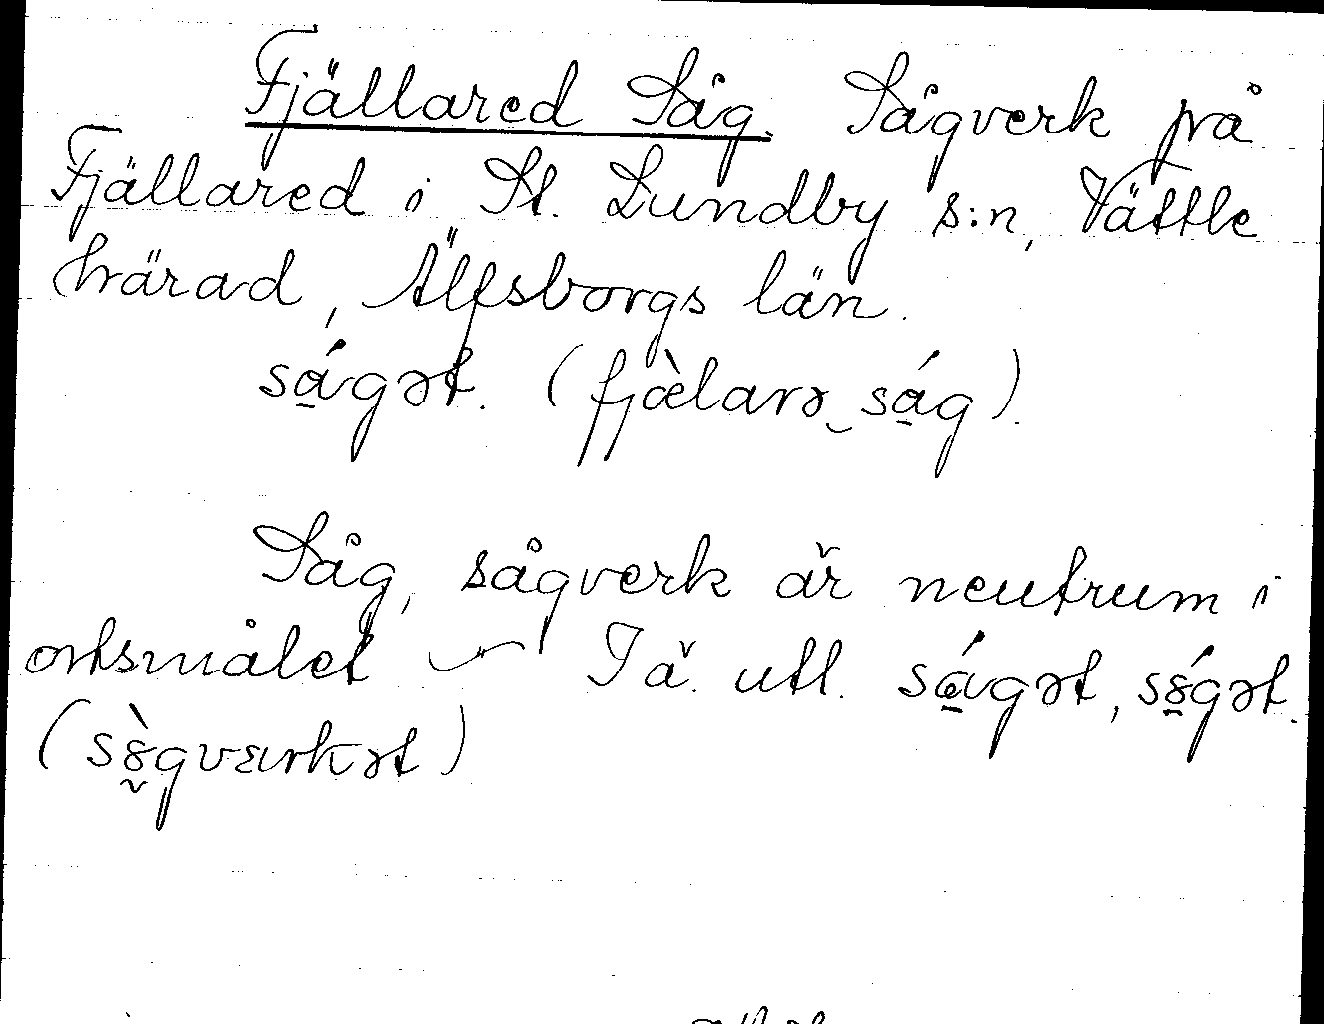 Fjällared Såg. Sågverk på
Fjällared i St. Lundby s:n, Vättle
härad, Älfsborgs län.
ságət. (fjæ̀larə‿ság).
Såg, sågverk är neutrum i
ortsmålet utt. ságət, sɤ́gət.
(sɤ̀gværkət)